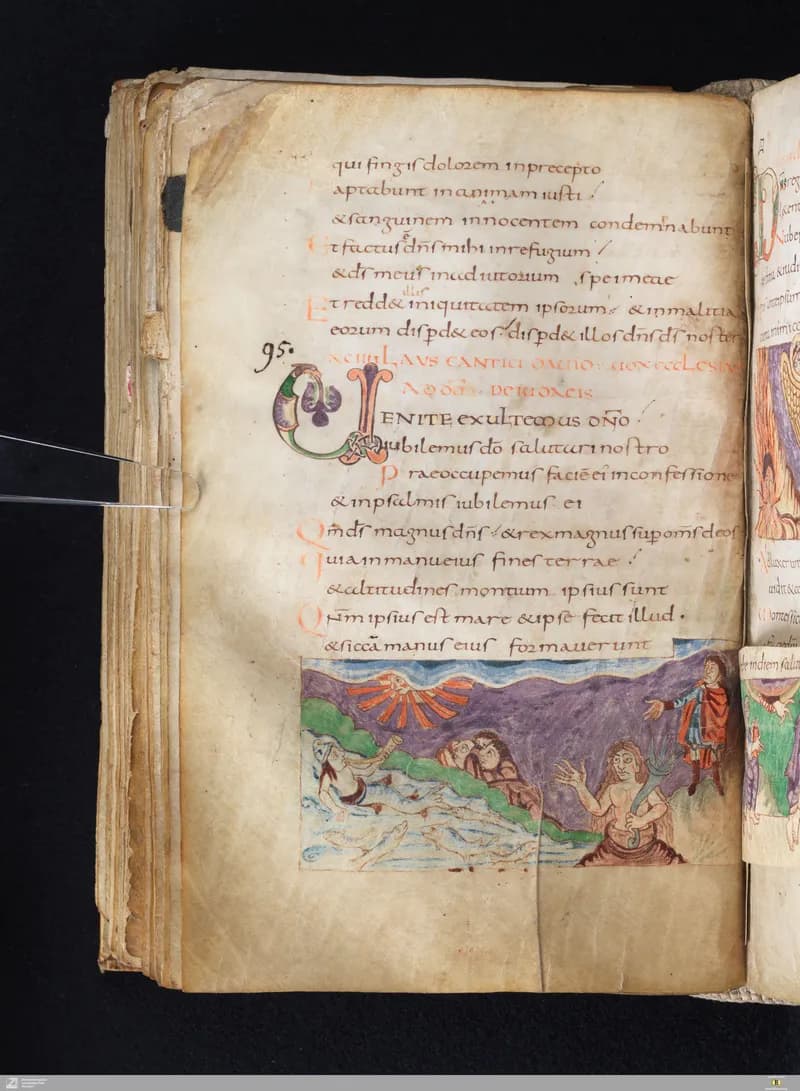 qui fingis dolorem in precepto
aptabunt in animam iusti
& sanguinem innocentem condemnabunt
Et factus ē dn̄s mihi in refugium
& ds̄ meus in adiutorium spei meae
Et redd& illis iniquitatem ipsorum & in malitia
eorum disp̄d& eos disp̄d& illos dn̄s ds̄ noster
95.
XCIIII LAUS CANTICI DAUID UOX ECCLESIE
VENITE exultemus DN̄O
iubilemus dō salutari nostro
Praeoccupemus faciē eī in confessione
& in psalmis iubilemus ei
Qm̄ ds̄ magnus dn̄s & rex magnus sup om̄s deos
Quia in manu eius fines terrae
& altitudines montium ipsius sunt
Qn̄m ipsius est mare & ipse fecit illud
& siccā manus eius formauerunt